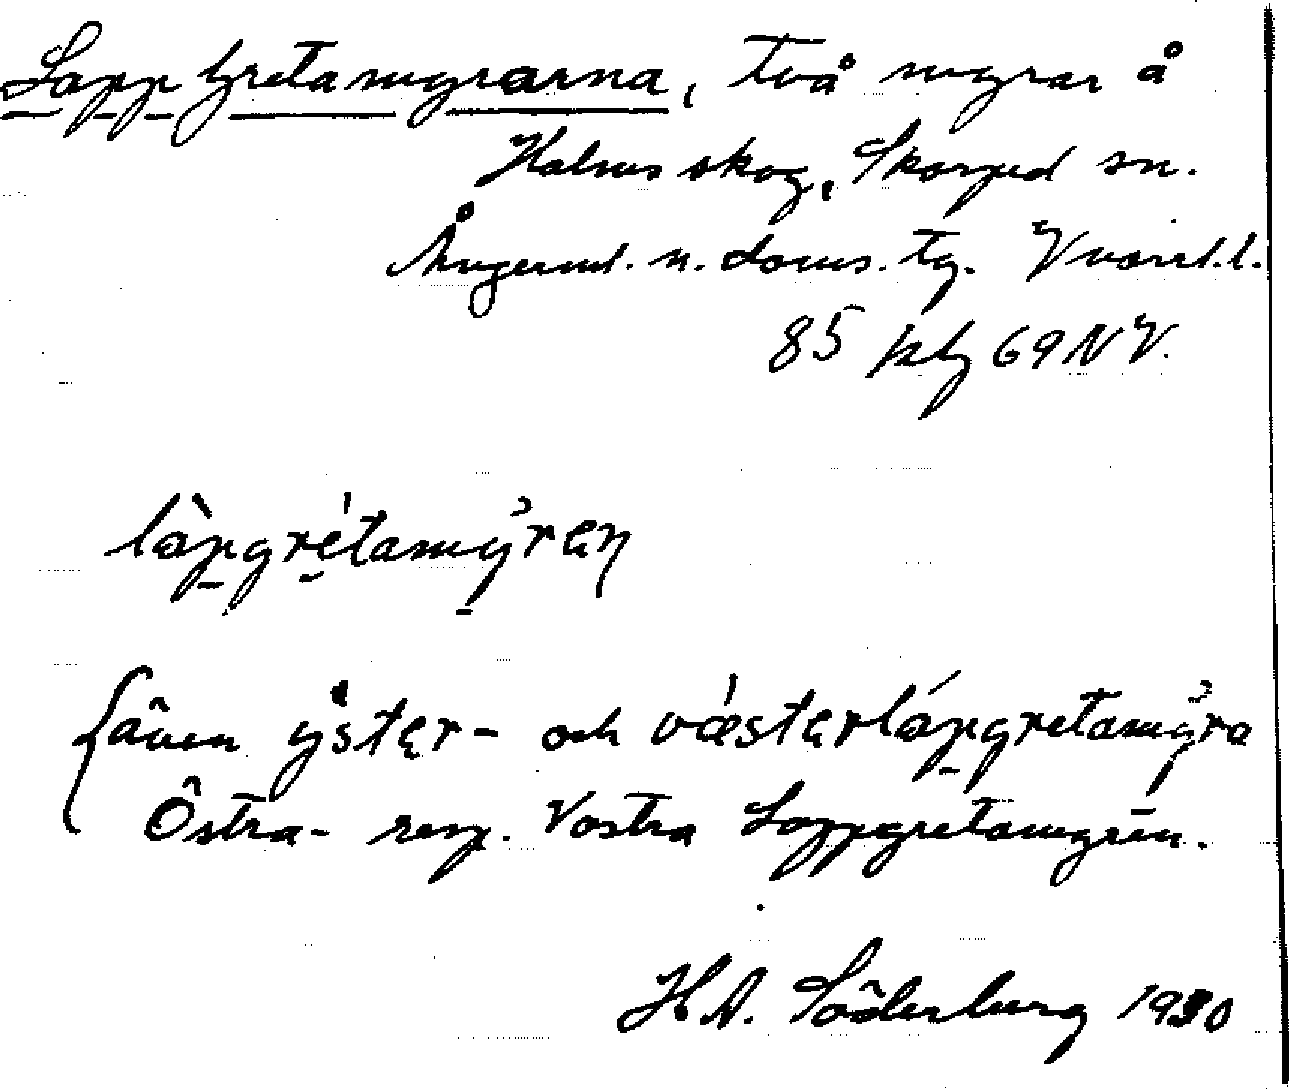 Lappgretamyrarna, två myrar å
Holms skog, Skorped sn.
Ångerml. n. doms. tg. Vnorrl. l.
85 kbg 69 NV.
làpgrétamy̆ren
även ÿster- och væsterlápgretamy̆ra
Östra- resp. Västra Lappgretamyren.
H.A. Söderberg 1930